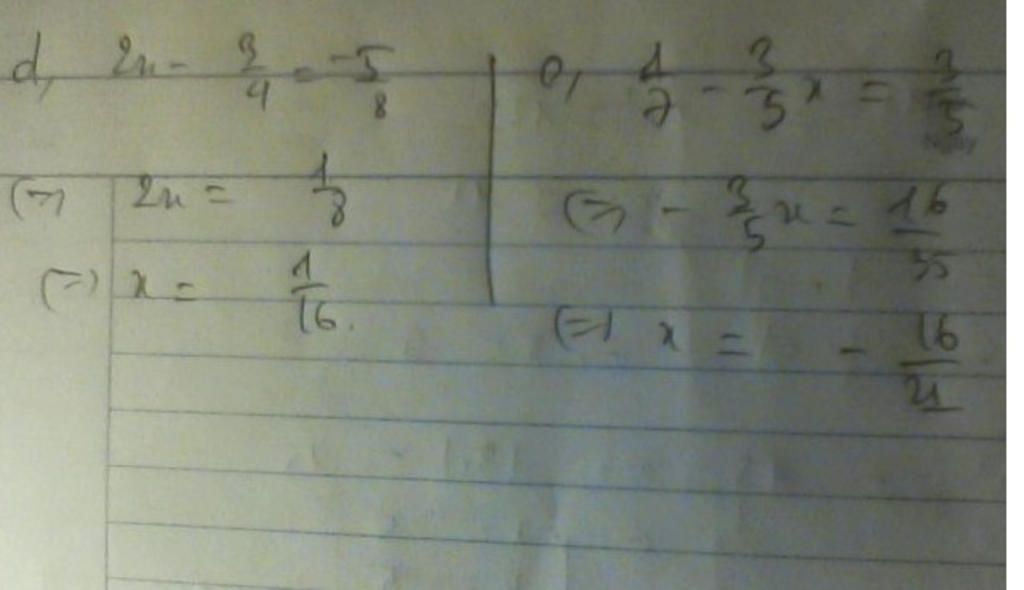 d, 2x - 3/4 = -5/8
(=) 2x = 1/8
(=) x = 1/16.
o, 1/7 - 3/5 x = 3/5
(=) - 3/5 x = 16/35
(=) x = - 16/21